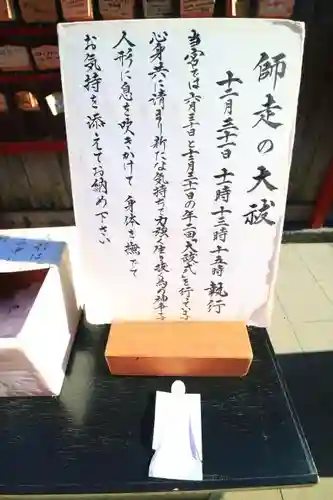 師走の大祓
十二月三十一日 十時 十三時 十五時 執行
当宮では六月三十日と十二月三十一日の年二回「大祓式」を行って
心身共に清まり新たな気持ちで力強く生き抜く為の神事
人形に息を吹きかけて 身体を撫でて
お気持を添えてお納め下さい